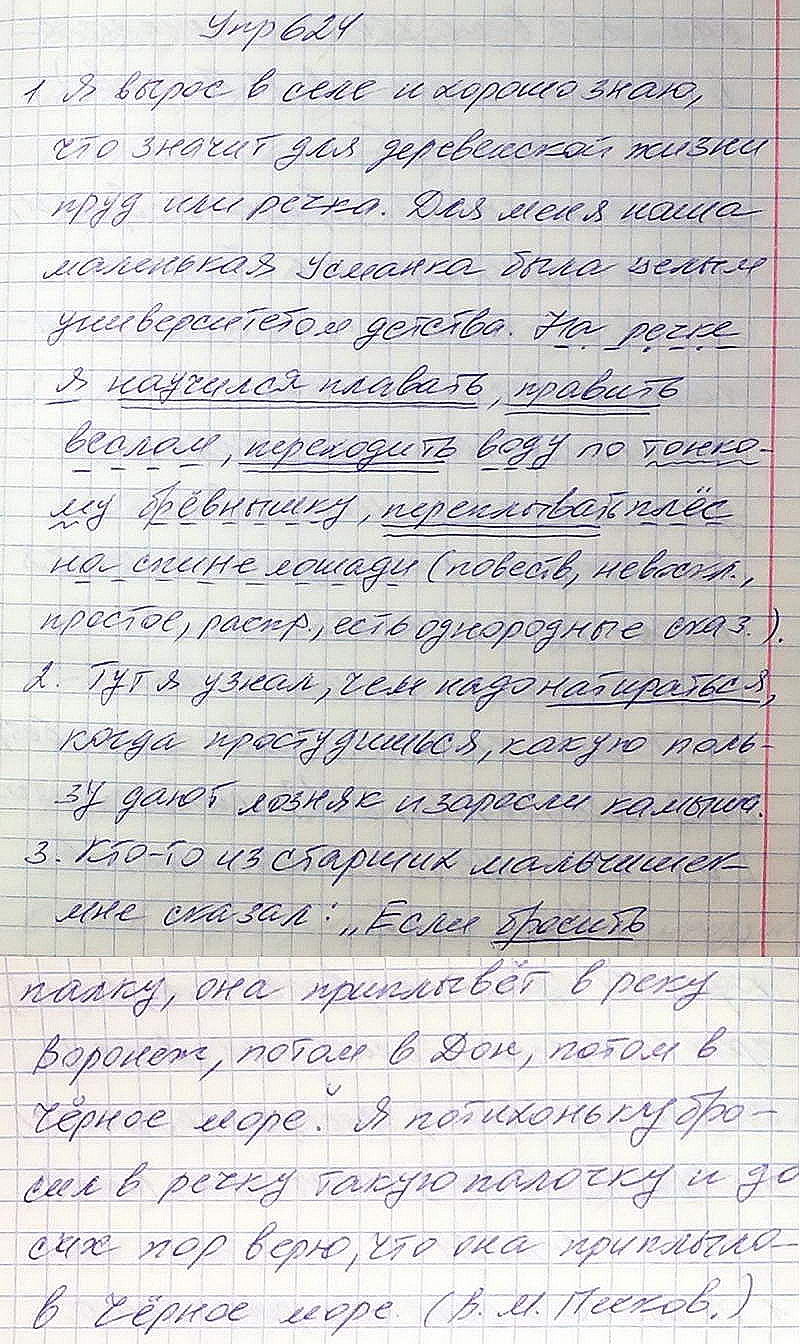 Упр 624
1 Я вырос в селе и хорошо знаю,
что значит для деревенской жизни
пруд или речка. Для меня наша
маленькая Усманка была целым
университетом детства. На речке
я научился плавать, править
веслом, переходить воду по тонко-
му брёвнышку, переплывать плёс
на спине лошади (повеств, невоскл.,
простое, распр., есть однородные сказ.).
2. Тут я узнал, чем надо натираться,
когда простудишься, какую поль-
зу дают лозняк и заросли камыша.
3. Кто-то из старших мальчишек
мне сказал: „Если бросить
палку, она приплывёт в реку
Воронеж, потом в Дон, потом в
Чёрное море". Я потихоньку бро-
сил в речку такую палочку и до
сих пор верю, что она приплыла
в Чёрное море. (В. М. Песков.)